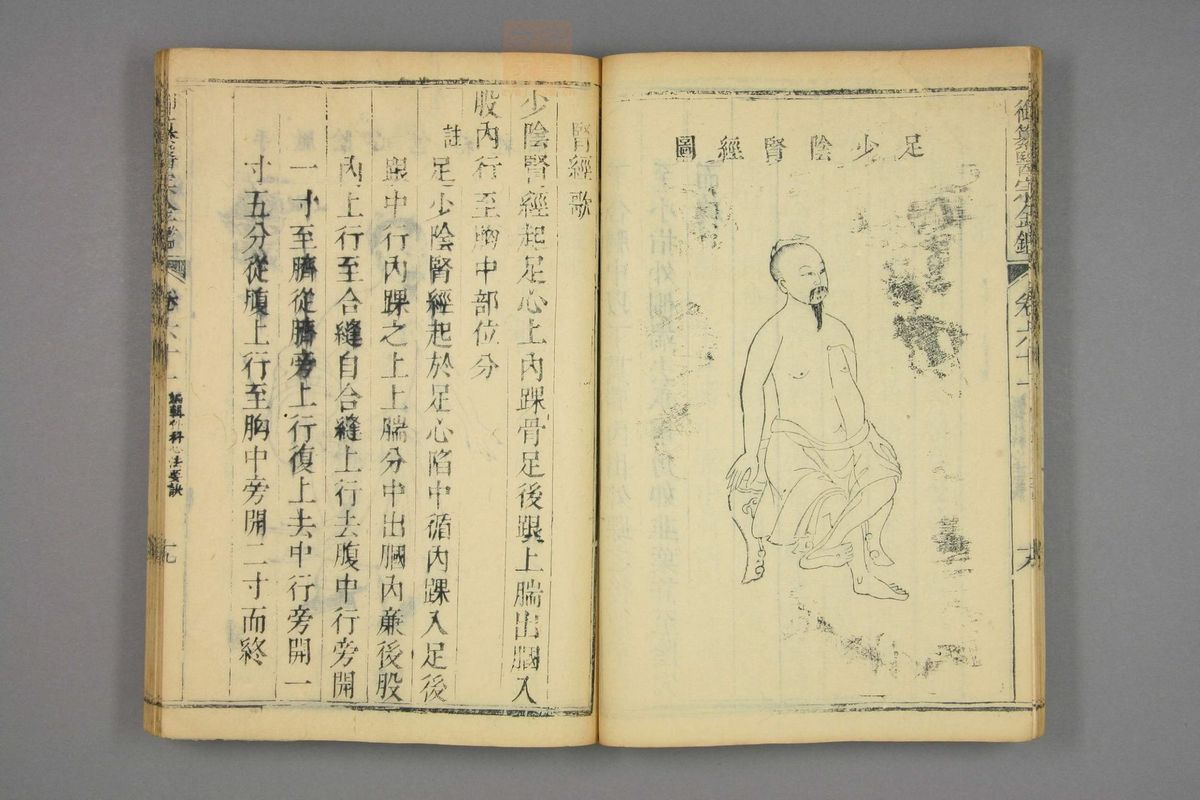 御纂醫宗金鑑
卷六十一
足少陰腎經圖
腎經歌
少陰腎經起足心上內踝骨足後跟上腨出膕入
股內行至胸中部位分
註
足少陰腎經起於足心陷中循內踝入足後
跟中行內踝之上上腨分中出膕內廉後股
內上行至合縫自合縫上行去腹中行旁開
一寸至臍從臍旁上行復上去中行旁開一
寸五分從腹上行至胸中旁開二寸而終
卷六十一
編輯外科心法要訣